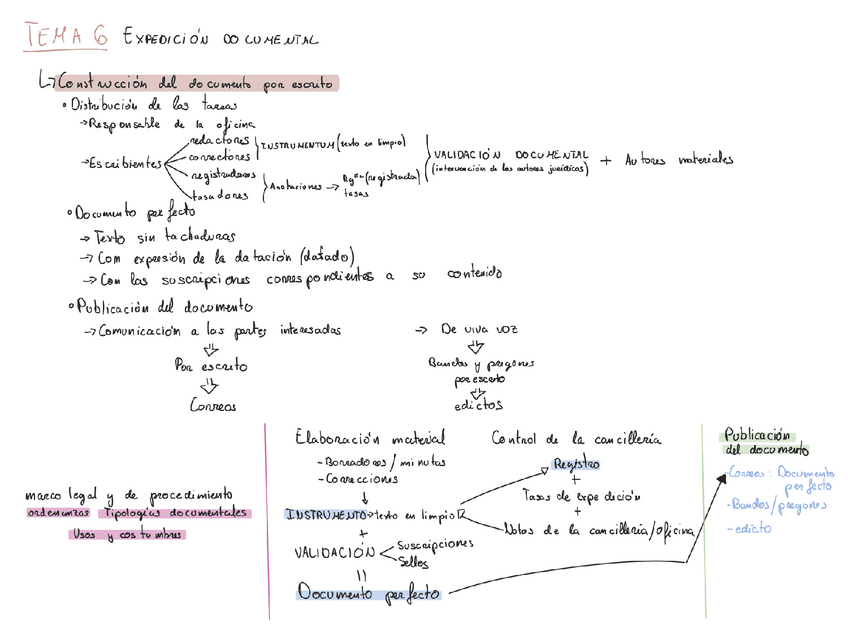 TEMA 6 EXPEDICIÓN DOCUMENTAL
↳ Construcción del documento por escrito
• Distribución de las tareas
→ Responsable de la oficina
→ Escribientes
redactores
correctores
registradores
tasadores
INSTRUMENTUM (texto en limpio)
Anotaciones → Rgta (registrada)
tasas
VALIDACIÓN DOCUMENTAL + Autores materiales
(intervención de los autores jurídicos)
• Documento perfecto
→ Texto sin tachaduras
→ Com expresión de la datación (datado)
→ Con las suscripciones correspondientes a su contenido
• Publicación del documento
→ Comunicación a las partes interesadas → De viva voz
Por escrito
Correos
Bandos y pregones
por escrito
edictos
marco legal y de procedimiento
ordenanzas Tipologías documentales
Usos y costumbres
Elaboración material
- Borradores / minutas
- Correcciones
INSTRUMENTO → texto en limpio
+
VALIDACIÓN
Suscripciones
Sellos
||
Documento perfecto
Control de la cancillería
Registro
+
Tasas de expedición
+
Notas de la cancillería/oficina
Publicación
del documento
- Correos: Documento
perfecto
- Bandos/pregones
- edicto